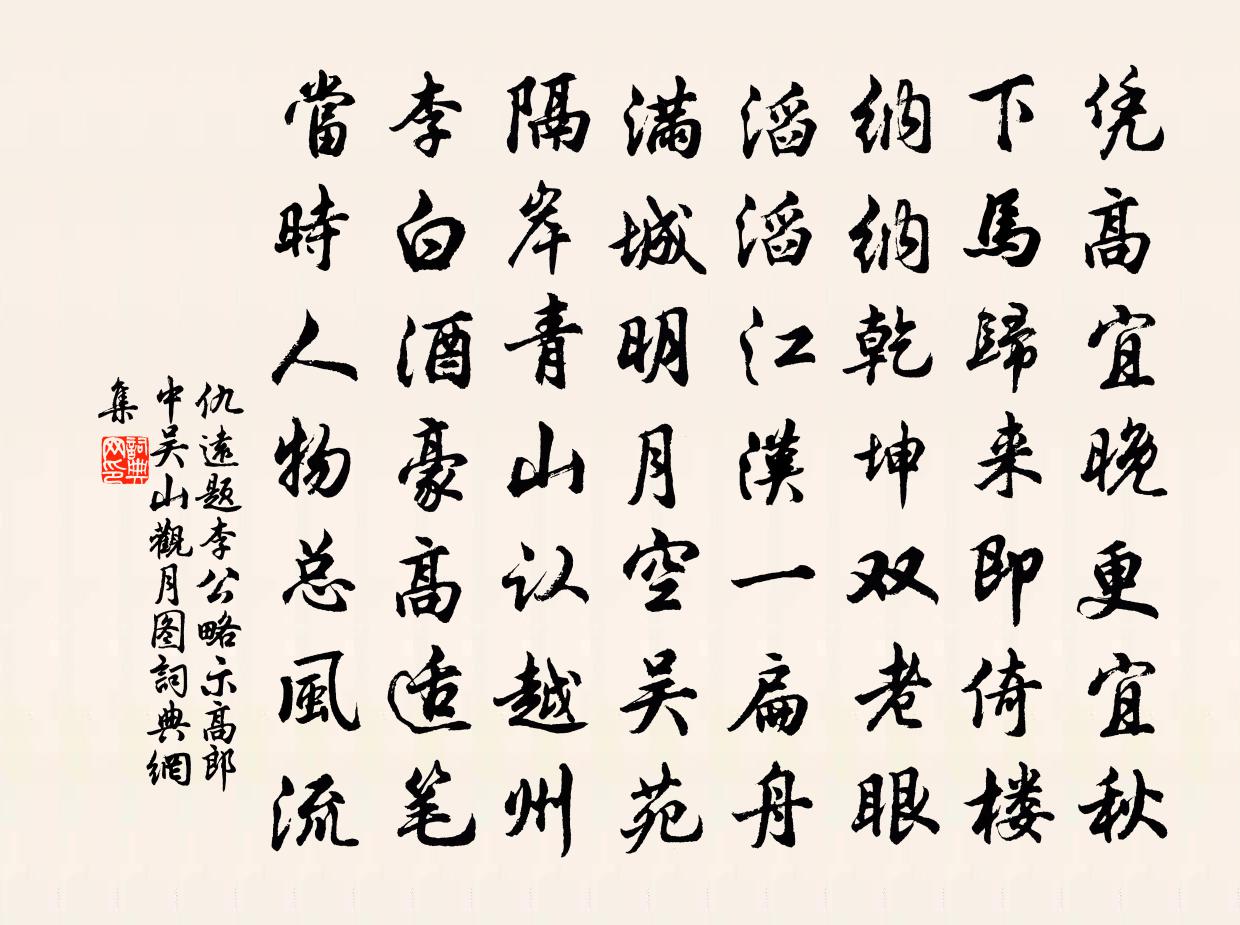 凭高宜晚更宜秋
下馬歸来即倚楼
纳纳乾坤双老眼
滔滔江漢一扁舟
满城明月空吴苑
隔岸青山认越州
李白酒豪高适笔
當時人物总風流
仇遠題李公略示高郎
中吴山觀月图詞典網
集
詞典网印